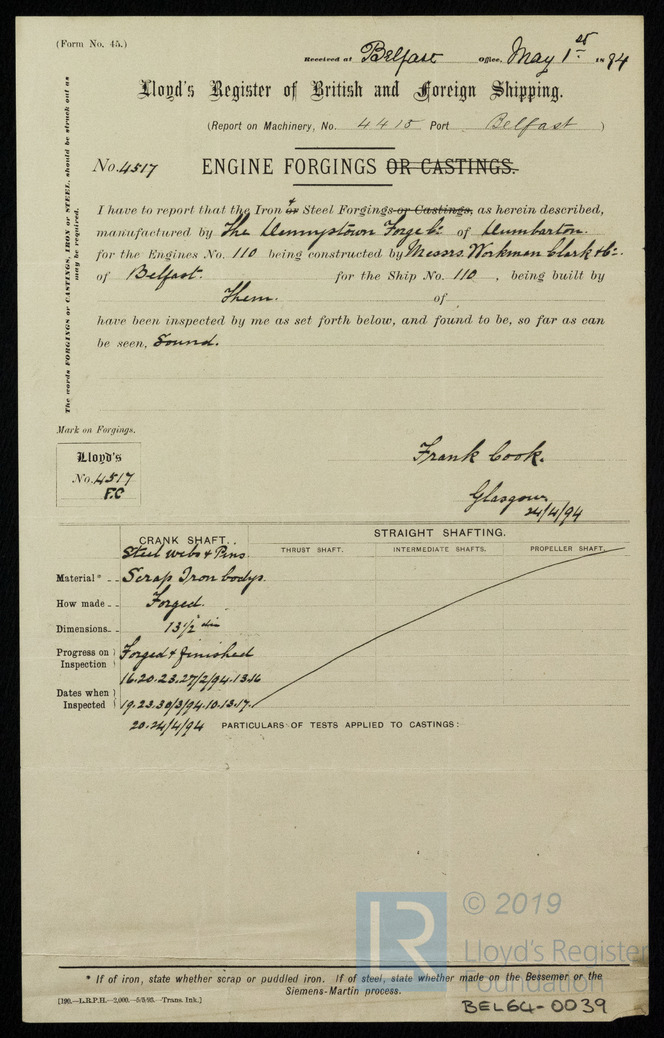 (Form No. 45.)
Received at Belfast Office, May 1st 1894
Lloyd's Register of British and Foreign Shipping.
(Report on Machinery, No. 4415 Port Belfast )
No. 4517 ENGINE FORGINGS OR CASTINGS.
The words FORGINGS or CASTINGS, IRON or STEEL, should be struck out as
may be required.
I have to report that the Iron or + Steel Forgings or Castings, as herein described,
manufactured by The Dennystown Forge Co. of Dumbarton.
for the Engines No. 110 being constructed by Messrs. Workman Clark & Co.
of Belfast. for the Ship No. 110 , being built by
Them. of
have been inspected by me as set forth below, and found to be, so far as can
be seen, Sound.
Mark on Forgings.
Lloyd's
No. 4517
F.C
Frank Cook.
Glasgow
24/4/94
CRANK SHAFT. STRAIGHT SHAFTING.
THRUST SHAFT. INTERMEDIATE SHAFTS. PROPELLER SHAFT.
Steel webs & Pins.
Material* Scrap Iron bodys.
How made Forged.
Dimensions 13½" dia
Progress on Inspection Forged & finished
16.20.23.27/2/94.13.16
Dates when Inspected 19.23.30/3/94.10.13.17.
20.24/4/94 PARTICULARS OF TESTS APPLIED TO CASTINGS:
© 2019
LR Lloyd's Register
Foundation
* If of iron, state whether scrap or puddled iron. If of steel, state whether made on the Bessemer or the
Siemens-Martin process.
[190.—L.R.P.H.—2,000.—5/5/93.—Trans. Ink.]
BEL64-0039